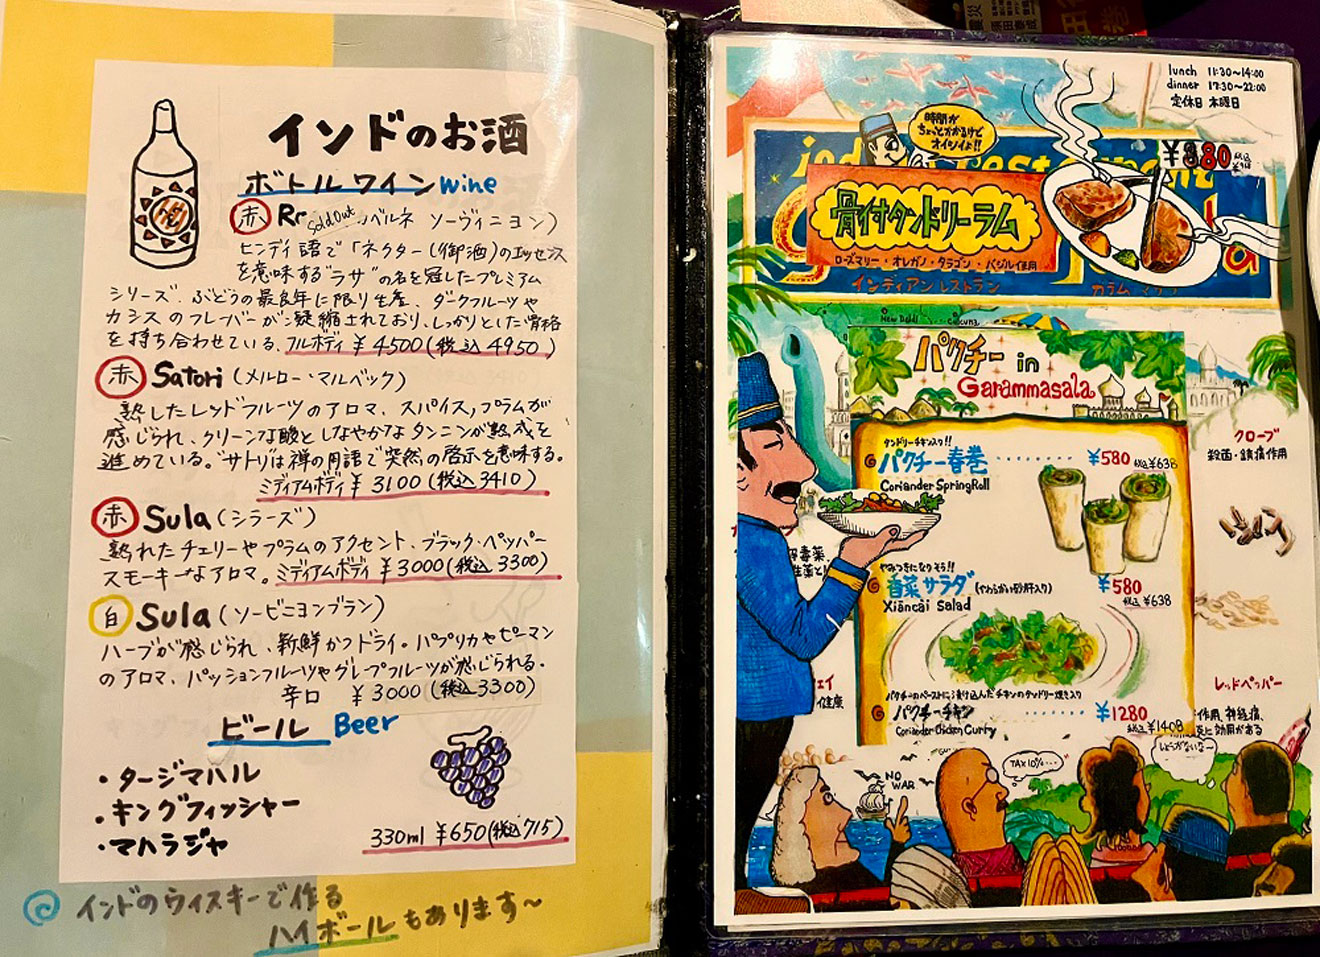 インドのお酒
ボトルワイン wine
赤 Rr Sold Out ベルネ ソーヴィニヨン)
ヒンディ語で「ネクター(御酒)のエッセンス
を意味する"ラサ"の名を冠したプレミアム
シリーズ. ぶどうの最良年に限り生産、ダークフルーツや
カシスのフレーバーが凝縮されており、しっかりとした骨格
を持ち合わせている、フルボディ ¥4500(税込4950)
赤 Satori (メルロー・マルベック)
熟したレッドフルーツのアロマ、スパイス,プラムが
感じられ、クリーンな酸としなやかなタンニンが熟成を
進めている。"サトリ"は禅の用語で突然の啓示を意味する。
ミディアムボディ ¥3100(税込3410)
赤 Sula (シラーズ)
熟れたチェリーやプラムのアクセント、ブラック・ペッパー
スモーキーなアロマ。ミディアムボディ ¥3000(税込3300)
白 Sula (ソービニヨンブラン)
ハーブが感じられ、新鮮かつドライ。パプリカやピーマン
のアロマ、パッションフルーツやグレープフルーツが感じられる.
辛口 ¥3000(税込3300)
ビール Beer
・タージマハル
・キングフィッシャー
・マハラジャ
330ml ¥650(税込715)
インドのウィスキーで作る
ハイボールもあります〜
lunch 11:30〜14:00
dinner 17:30〜22:00
定休日 木曜日
時間が
ちょっとかかるけど
オイシイよ!!
¥880
骨付タンドリーラム
ローズマリー・オレガノ・タラゴン・バジル使用
インディアンレストラン
ガラムマサラ
New Delhi
パクチー in
Garammasala
タンドリーチキン入り!!
パクチー春巻 ¥580 税込¥638
Coriander SpringRoll
やみつきになりそう!!
香菜サラダ (やわらかい砂肝入り) ¥580
Xiāncài Salad 税込¥638
パクチーのペーストに漬け込んだチキンのタンドリー焼き入り
パクチーチキン ¥1280
Coriander Chicken Curry 税込¥1408
クローブ
殺菌・鎮痛作用
レッドペッパー
作用、神経痛、
に効用がある
健康
NO
WAR
TAX10%…
しょうがないなー